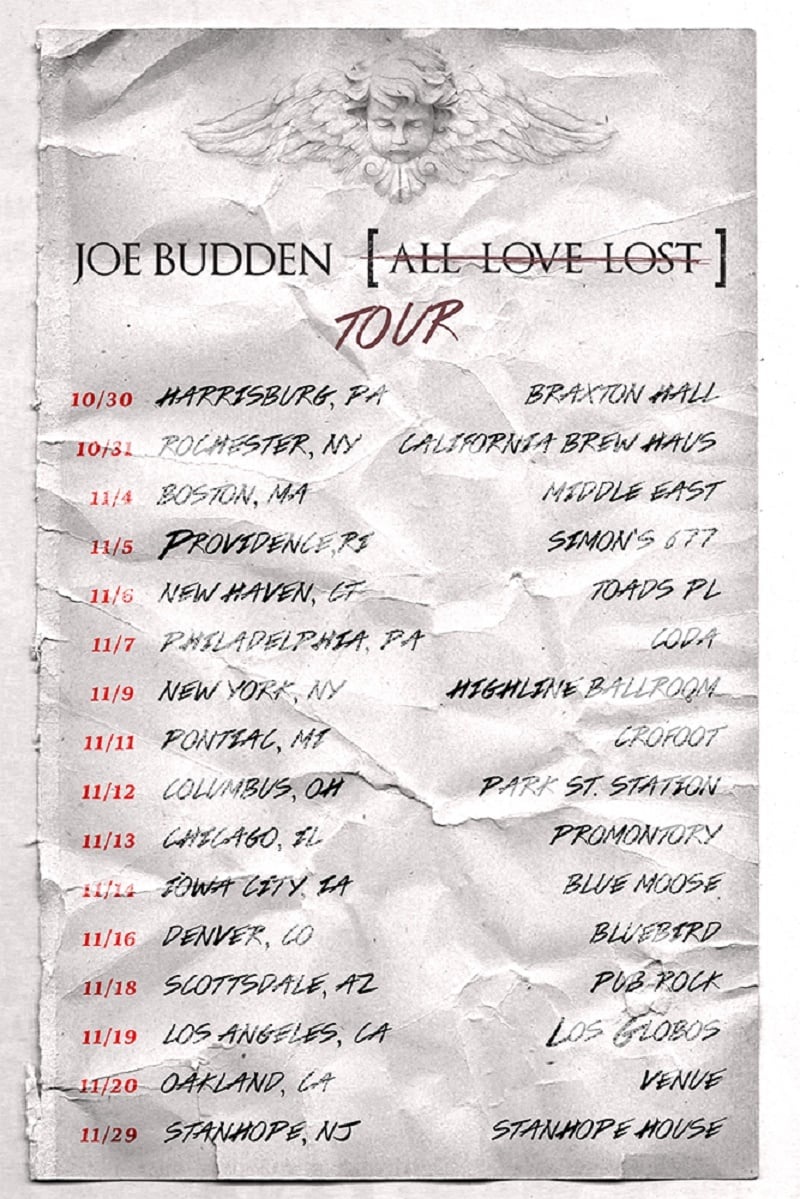 JOE BUDDEN [ALL LOVE LOST]
TOUR
10/30 HARRISBURG, PA BRAXTON HALL
10/31 ROCHESTER, NY CALIFORNIA BREW HAUS
11/4 BOSTON, MA MIDDLE EAST
11/5 PROVIDENCE,RI SIMON'S 677
11/6 NEW HAVEN, CT TOADS PL
11/7 PHILADELPHIA, PA CODA
11/9 NEW YORK, NY HIGHLINE BALLROOM
11/11 PONTIAC, MI CROFOOT
11/12 COLUMBUS, OH PARK ST. STATION
11/13 CHICAGO, IL PROMONTORY
11/14 IOWA CITY, IA BLUE MOOSE
11/16 DENVER, CO BLUEBIRD
11/18 SCOTTSDALE, AZ PUB ROCK
11/19 LOS ANGELES, CA LOS GLOBOS
11/20 OAKLAND, CA VENUE
11/29 STANHOPE, NJ STANHOPE HOUSE